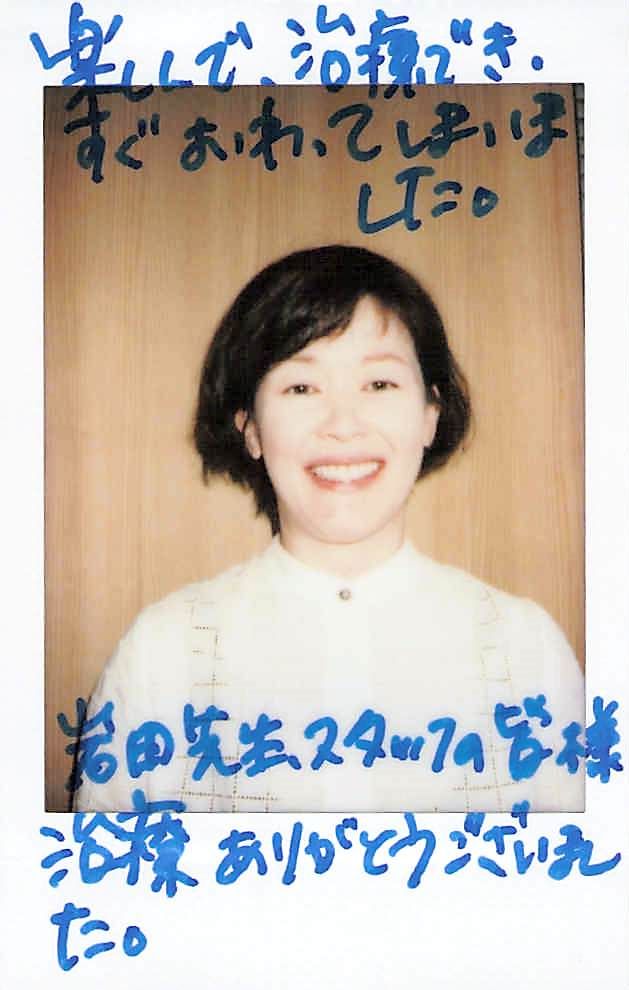 楽しんで、治療でき.
すぐおわってしまいま
した。
岩田先生、スタッフの皆様
治療ありがとうございまし
た。